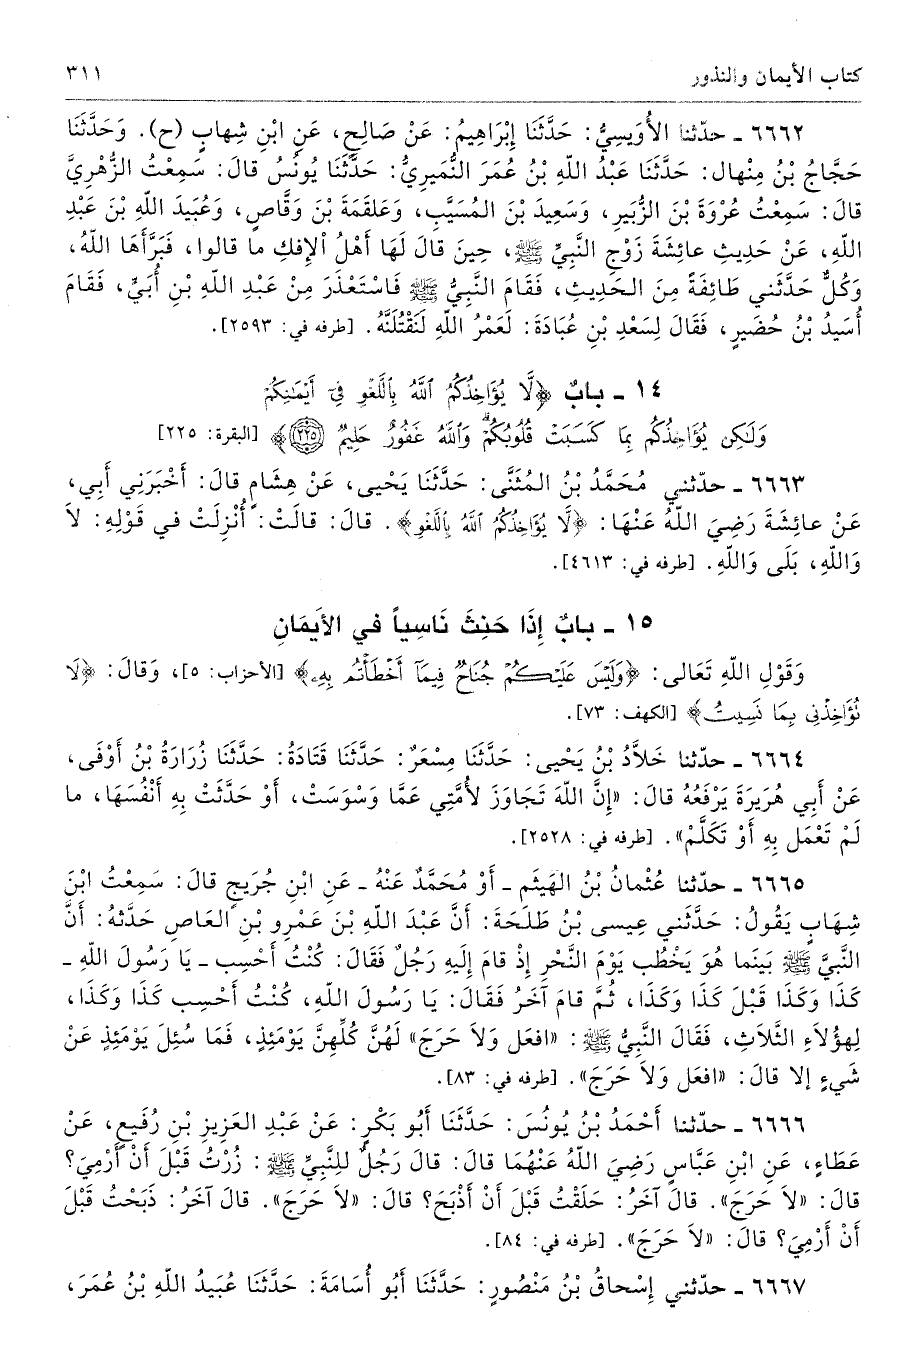 كتاب الأيمان والنذور ٣١١
٦٦٦٢ ـ حدّثنا الأُوَيسِيُّ: حَدَّثَنَا إِبْرَاهِيمُ: عَنْ صَالِحٍ، عَنِ ابْنِ شِهابٍ (ح). وَحَدَّثَنَا
حَجَّاجُ بْنُ مِنْهال: حَدَّثَنَا عَبْدُ اللّهِ بْنُ عُمَرَ النُّمَيرِيُّ: حَدَّثَنَا يُونُسُ قالَ: سَمِعْتُ الزُّهْرِيَّ
قالَ: سَمِعْتُ عُرْوَةَ بْنَ الزُّبَيرِ، وَسَعِيدَ بْنَ المُسَيَّبِ، وَعَلقَمَةَ بْنَ وَقَّاصٍ، وَعُبَيدَ اللّهِ بْنَ عَبْدِ
اللّهِ، عَنْ حَدِيثِ عائِشَةَ زَوْجِ النَّبِيِّ ﷺ، حِينَ قالَ لَهَا أَهْلُ ٱلإِفكِ ما قالوا، فَبَرَّأَهَا اللّهُ،
وَكُلٌّ حَدَّثَني طَائِفَةً مِنَ الحَدِيثِ، فَقَامَ النَّبِيُّ ﷺ فَاسْتَعْذَرَ مِنْ عَبْدِ اللّهِ بْنِ أُبَيٍّ، فَقَامَ
أُسَيدُ بْنُ حُضَيرٍ، فَقَالَ لِسَعْدِ بْنِ عُبَادَةَ: لَعَمْرُ اللّهِ لَنَقْتُلَنَّهُ. [طرفه في: ٢٥٩٣].
١٤ ـ بابٌ ﴿لَّا يُؤَاخِذُكُمُ ٱللَّهُ بِٱللَّغْوِ فِيٓ أَيْمَـٰنِكُمْ
وَلَـٰكِن يُؤَاخِذُكُم بِمَا كَسَبَتْ قُلُوبُكُمْۗ وَٱللَّهُ غَفُورٌ حَلِيمٌ ۝٢٢٥﴾ [البقرة: ٢٢٥]
٦٦٦٣ ـ حدّثني مُحَمَّدُ بْنُ المُثَنَّى: حَدَّثَنَا يَحْيى، عَنْ هِشَامٍ قالَ: أَخْبَرَنِي أَبِي،
عَنْ عائِشَةَ رَضِيَ اللّهُ عَنْهَا: ﴿لَّا يُؤَاخِذُكُمُ ٱللَّهُ بِٱللَّغْوِ﴾. قالَ: قالَتْ: أُنْزِلَتْ في قَوْلِهِ: لاَ
وَاللّهِ، بَلَى وَاللّهِ. [طرفه في: ٤٦١٣].
١٥ ـ بابٌ إِذَا حَنِثَ نَاسِياً في الأَيمَانِ
وَقَوْلِ اللّهِ تَعَالى: ﴿وَلَيْسَ عَلَيْكُمْ جُنَاحٌ فِيمَآ أَخْطَأْتُم بِهِۦ﴾ [الأحزاب: ٥]، وَقالَ: ﴿لَا
نُؤَاخِذْنِي بِمَا نَسِيتُ﴾ [الكهف: ٧٣].
٦٦٦٤ ـ حدّثنا خَلاَّدُ بْنُ يَحْيى: حَدَّثَنَا مِسْعَرٌ: حَدَّثَنَا قَتَادَةُ: حَدَّثَنَا زُرَارَةُ بْنُ أَوْفَى،
عَنْ أَبِي هُرَيرَةَ يَرْفَعُهُ قالَ: «إِنَّ اللّهَ تَجَاوَزَ لأُمَّتِي عَمَّا وَسْوَسَتْ، أَوْ حَدَّثَتْ بِهِ أَنْفُسَهَا، ما
لَمْ تَعْمَل بِهِ أَوْ تَكَلَّمْ». [طرفه في: ٢٥٢٨].
٦٦٦٥ ـ حدّثنا عُثْمانُ بْنُ الهَيثَمِ ـ أَوْ مُحَمَّدٌ عَنْهُ ـ عَنِ ابْنِ جُرَيجٍ قالَ: سَمِعْتُ ابْنَ
شِهَابٍ يَقُولُ: حَدَّثَني عِيسى بْنُ طَلحَةَ: أَنَّ عَبْدَ اللّهِ بْنَ عَمْرِو بْنِ العَاصِ حَدَّثَهُ: أَنَّ
النَّبِيَّ ﷺ بَينَما هُوَ يَخْطُب يَوْمَ النَّحْرِ إِذْ قامَ إِلَيهِ رَجُلٌ فَقَالَ: كُنْتُ أَحْسِب ـ يَا رَسُولَ اللّهِ ـ
كَذَا وَكَذَا قَبْلَ كَذَا وَكَذَا، ثُمَّ قامَ آخَرُ فَقَالَ: يَا رَسُولَ اللّهِ، كُنْتُ أَحْسِب كَذَا وَكَذَا،
لِهؤُلاَءِ الثَّلاَثِ، فَقَالَ النَّبِيُّ ﷺ: «افعَل وَلاَ حَرَجَ» لَهُنَّ كُلِّهِنَّ يَوْمَئِذٍ، فَمَا سُئِلَ يَوْمَئِذٍ عَنْ
شَيءٍ إلا قالَ: «افعَل وَلاَ حَرَجَ». [طرفه في: ٨٣].
٦٦٦٦ ـ حدّثنا أَحْمَدُ بْنُ يُونُسَ: حَدَّثَنَا أَبُو بَكْرٍ: عَنْ عَبْدِ العَزِيزِ بْنِ رُفَيعٍ، عَنْ
عَطَاءٍ، عَنِ ابْنِ عَبَّاسٍ رَضِيَ اللّهُ عَنْهُمَا قالَ: قالَ رَجُلٌ لِلنَّبِيِّ ﷺ: زُرْتُ قَبْلَ أَنْ أَرْمِيَ؟
قالَ: «لاَ حَرَجَ». قالَ آخَرُ: حَلَقْتُ قَبْلَ أَنْ أَذْبَحَ؟ قالَ: «لاَ حَرَجَ». قالَ آخَرُ: ذَبَحْتُ قَبْلَ
أَنْ أَرْمِيَ؟ قالَ: «لاَ حَرَجَ». [طرفه في: ٨٤].
٦٦٦٧ ـ حدّثني إِسْحاقُ بْنُ مَنْصُورٍ: حَدَّثَنَا أَبُو أُسَامَةَ: حَدَّثَنَا عُبَيدُ اللّهِ بْنُ عُمَرَ،